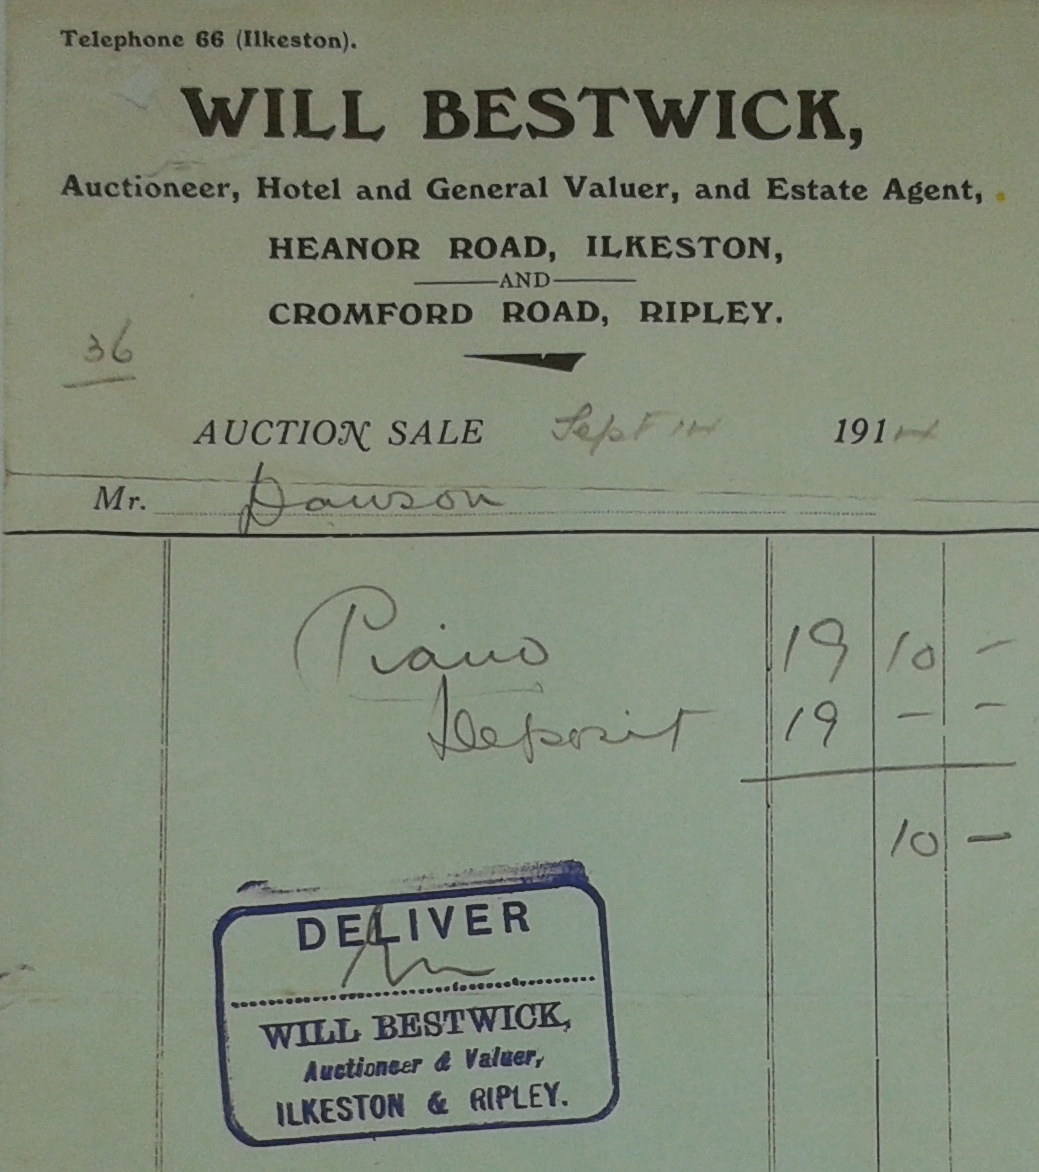 Telephone 66 (Ilkeston).
WILL BESTWICK,
Auctioneer, Hotel and General Valuer, and Estate Agent,
HEANOR ROAD, ILKESTON,
AND
CROMFORD ROAD, RIPLEY.
36
AUCTION SALE Sept 14 1914
Mr. Dawson
Piano 19 10 -
Deposit 19 - -
10 -
DELIVER
WILL BESTWICK,
Auctioneer & Valuer,
ILKESTON & RIPLEY.